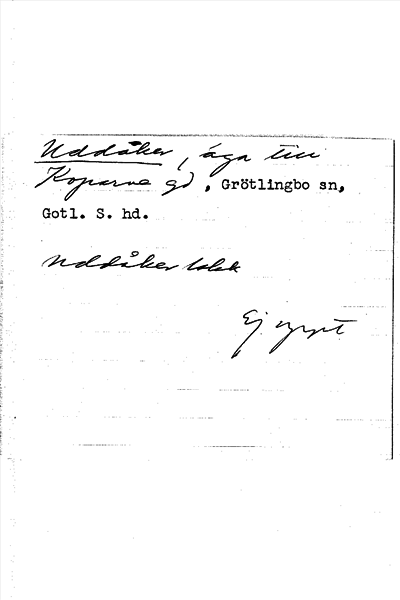 Uddåker, äga till
Koparve gd, Grötlingbo sn,
Gotl. S. hd.
Uddåker
Ej